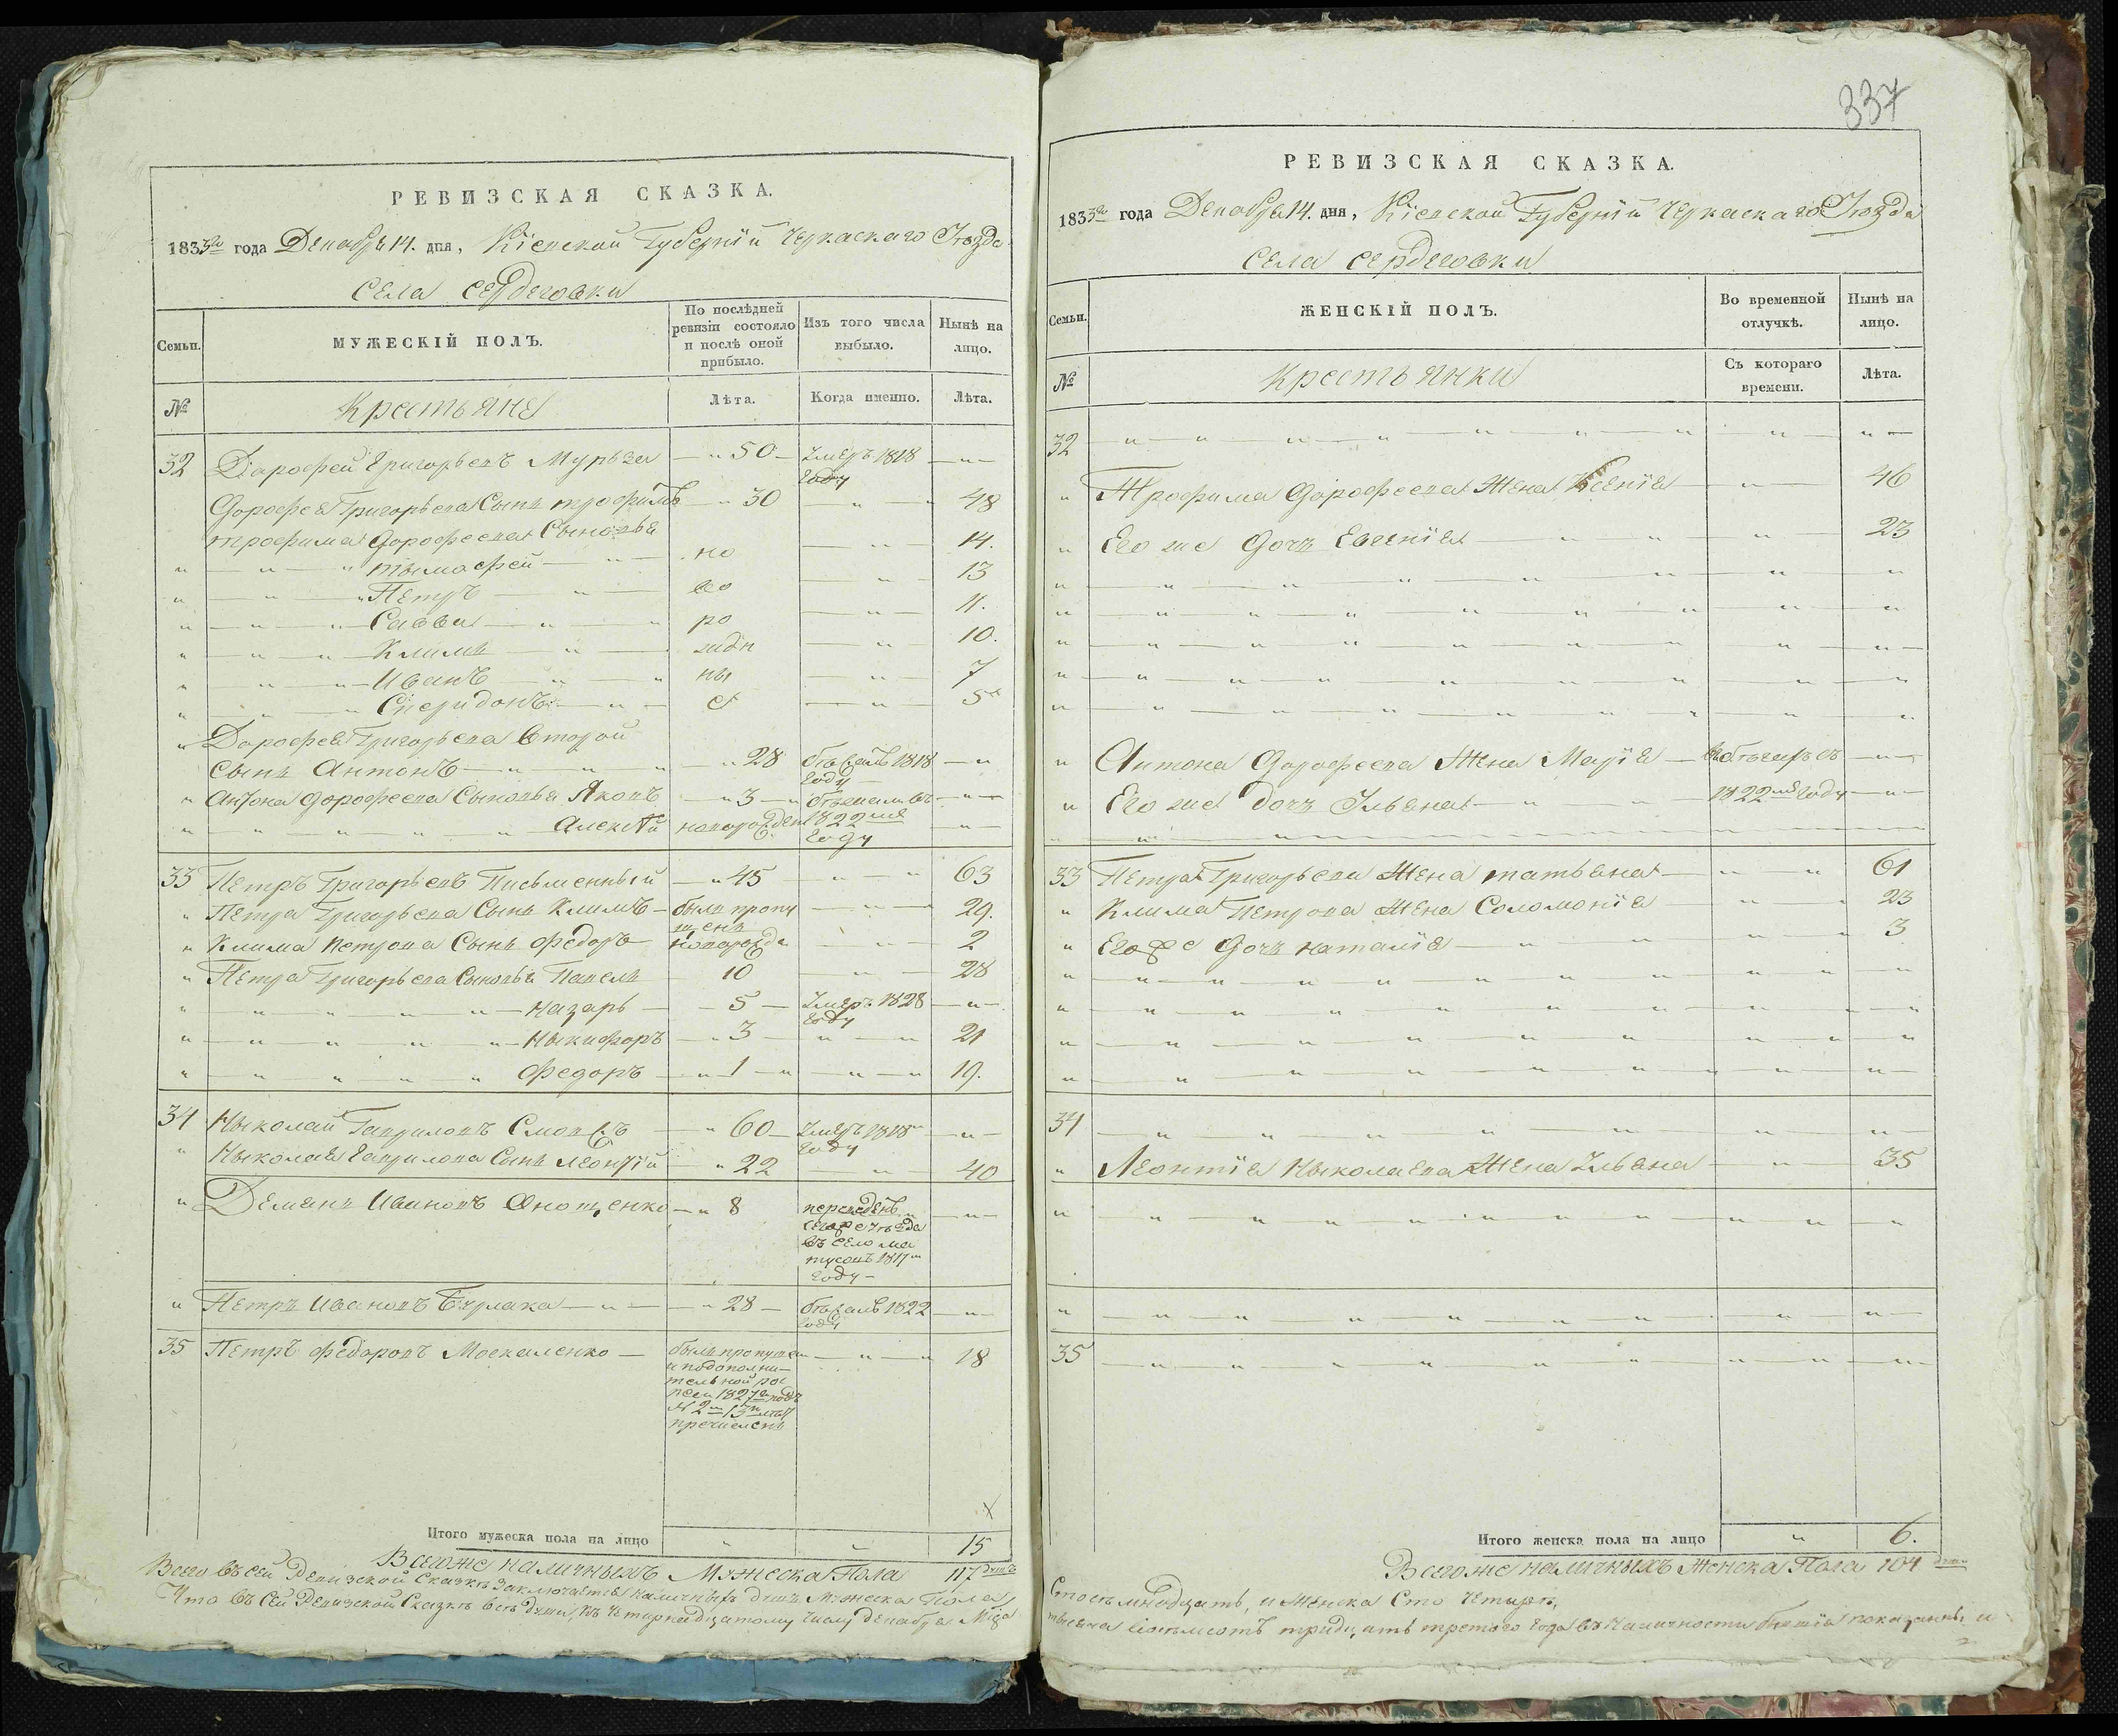 РЕВИЗСКАЯ СКАЗКА.
1833го года Декабря 14. дня, Кіевской Губерніи Черкаскаго Уѣзда
Села Сердеговки
Семьи.
МУЖЕСКІЙ ПОЛЪ.
По послѣдней ревизіи состояло и послѣ оной прибыло.
Изъ того числа выбыло.
Нынѣ на лицо.
№
Крестьяне
Лѣта.
Когда именно.
Лѣта.
32 Дарофей Григорьевъ Мурза 50 Умеръ 1818 году
Дорофея Григорьева Сынъ трофимъ 30 48
трофима Дорофеева Сыновья
тымофей но 14.
Петръ во 13
Савва ро 11.
Климъ жде 10.
Иванъ ны 7
Спиридонъ е 5
Дорофея Григорьева Второй
сынъ Антонъ 28 бѣжалъ 1818 году
Антона Дорофеева Сыновья Яковъ 3 въ
Алексѣй новорожден 1822мъ году
33 Петръ Григорьевъ Письменный 45 63
Петра Григорьева Сынъ Климъ былъ пропущенъ 29.
Клима Петрова Сынъ Федоръ новорожде 2
Петра Григорьева Сыновья Павелъ 10 28
Назаръ 5 Умеръ 1828 году
Ныкифоръ 3 21
Федоръ 1 19.
34 Ныколай Гавриловъ 60 Умеръ 1818 году
Ныколая Гаврилова Сынъ Леонтій 22 40
Демянъ Ивановъ Онопченко 8 переведенъ
сегоже Уѣзда
въ село Ма
тусовъ 1817м
году
Петръ Ивановъ Бурлака 28 бѣжалъ 1822 году
35 Петръ Федоровъ Москаленко былъ пропущен 18
и подополни-
тельной рос
писи 1827го подъ
№ 2м 13 лѣтъ
причисленъ
Итого мужеска пола на лицо 15
Всегоже наличныхъ Мужеска Пола 117 душъ
Всего въ сей Ревизской Сказкѣ заключается наличныхъ душъ Мужеска Пола
Что въ Сей Ревизской Сказкѣ всѣ души, къ четырнадцатому числу Декабря
337
РЕВИЗСКАЯ СКАЗКА.
1833го года Декабря 14. дня, Кіевской Губерніи Черкаскаго Уѣзда
Села Сердеговки
Семьи.
ЖЕНСКІЙ ПОЛЪ.
Во временной отлучкѣ.
Нынѣ на лицо.
№
Крестьянки
Съ котораго времени.
Лѣта.
32
Трофима Дорофеева Жена Ксенія 46
Его же Дочь Евгенія 23
Антона Дорофеева Жена Марія въ бѣгахъ съ
Его же дочь Ульяна 1822го году
33 Петра Григорьева Жена татьяна 61
Клима Петрова Жена Соломонія 23
Егоже Дочь наталія 3
34
Леонтія Ныколаева Жена Ульяна 35
35
Итого женска пола на лицо 6.
Всегоже наличныхъ Женска Пола 104 душъ
Сто семнадцать, и Женска Сто Четыре,
тысяча восемсотъ тридцать третого года въ Наличности бытія показанны и